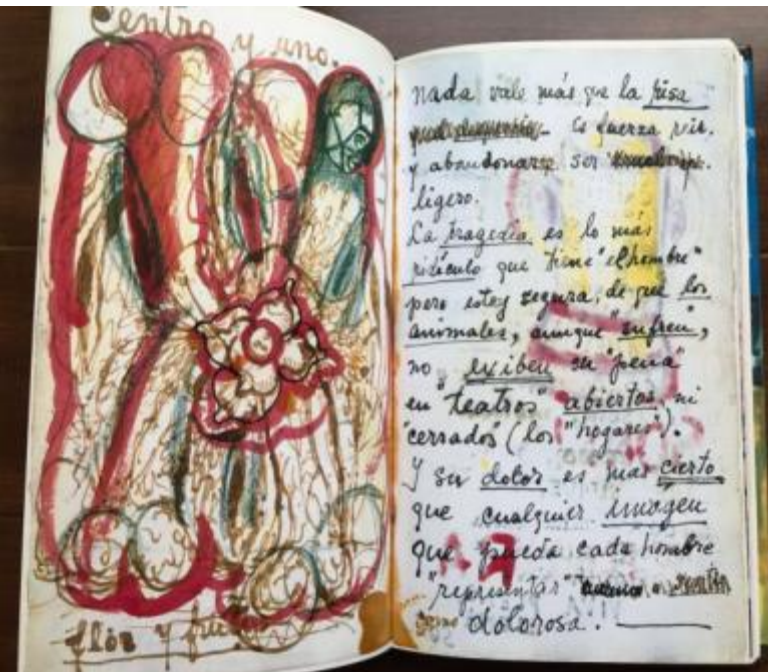 Centro y uno.
flor y fruto
Nada vale más que la risa
Es fuerza reir.
y abandonarse ser
ligero.
La tragedia es lo más
ridículo que tiene "el hombre"
pero estoy segura, de que los
animales, aunque "sufren",
no exiben su "pena"
en "teatros" abiertos, ni
"cerrados" (los "hogares").
Y su dolor es mas cierto
que cualquier imagen
que pueda cada hombre
"representar"
como dolorosa.